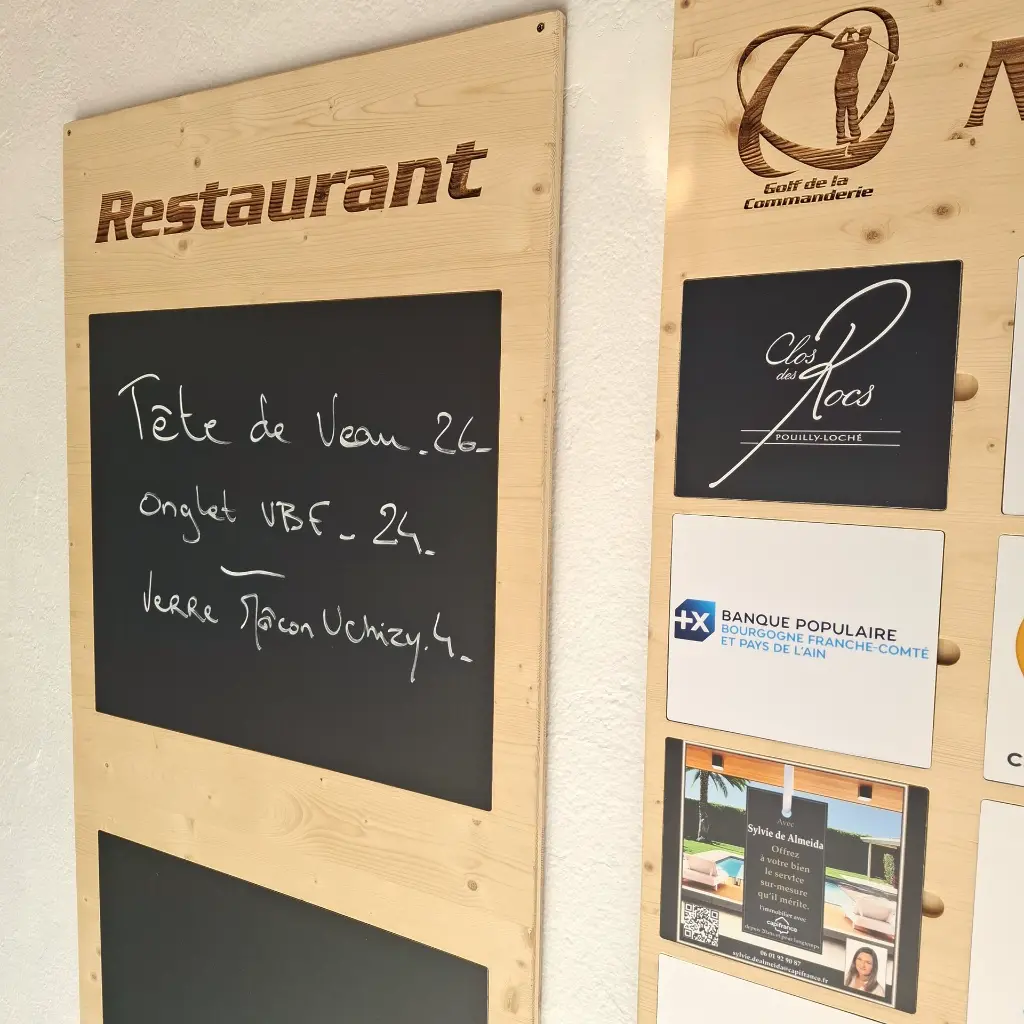 Restaurant
Tête de Veau - 26 -
onglet VBF - 24 -
verre Mâcon Uchizy. 4 -
Golf de la
Commanderie
Clos
des Rocs
POUILLY-LOCHÉ
+X
BANQUE POPULAIRE
BOURGOGNE FRANCHE-COMTÉ
ET PAYS DE L'AIN
Avec
Sylvie de Almeida
Offrez
à votre bien
le service
sur-mesure
qu'il mérite.
l'immobilier avec
capifrance
06 01 92 90 87
sylvie.dealmeida@capifrance.fr